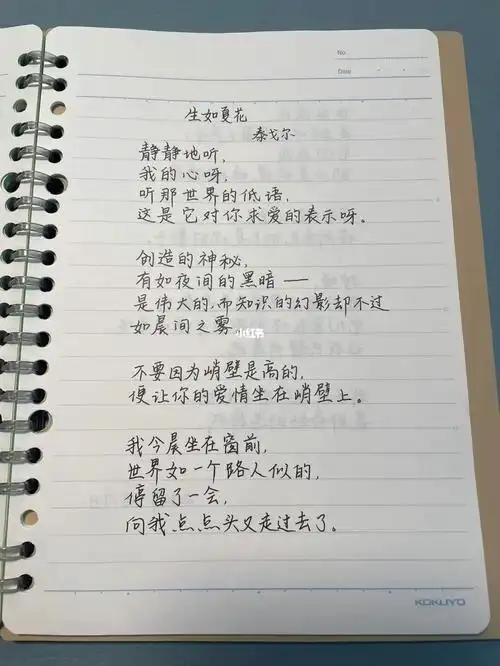 No.
Date
生如夏花
泰戈尔
静静地听，
我的心呀，
听那世界的低语，
这是它对你求爱的表示呀。
创造的神秘，
有如夜间的黑暗——
是伟大的，而知识的幻影却不过
如晨间之雾。
小红书
不要因为峭壁是高的，
便让你的爱情坐在峭壁上。
我今晨坐在窗前，
世界如一个路人似的，
停留了一会，
向我点点头又走过去了。
KOKUYO